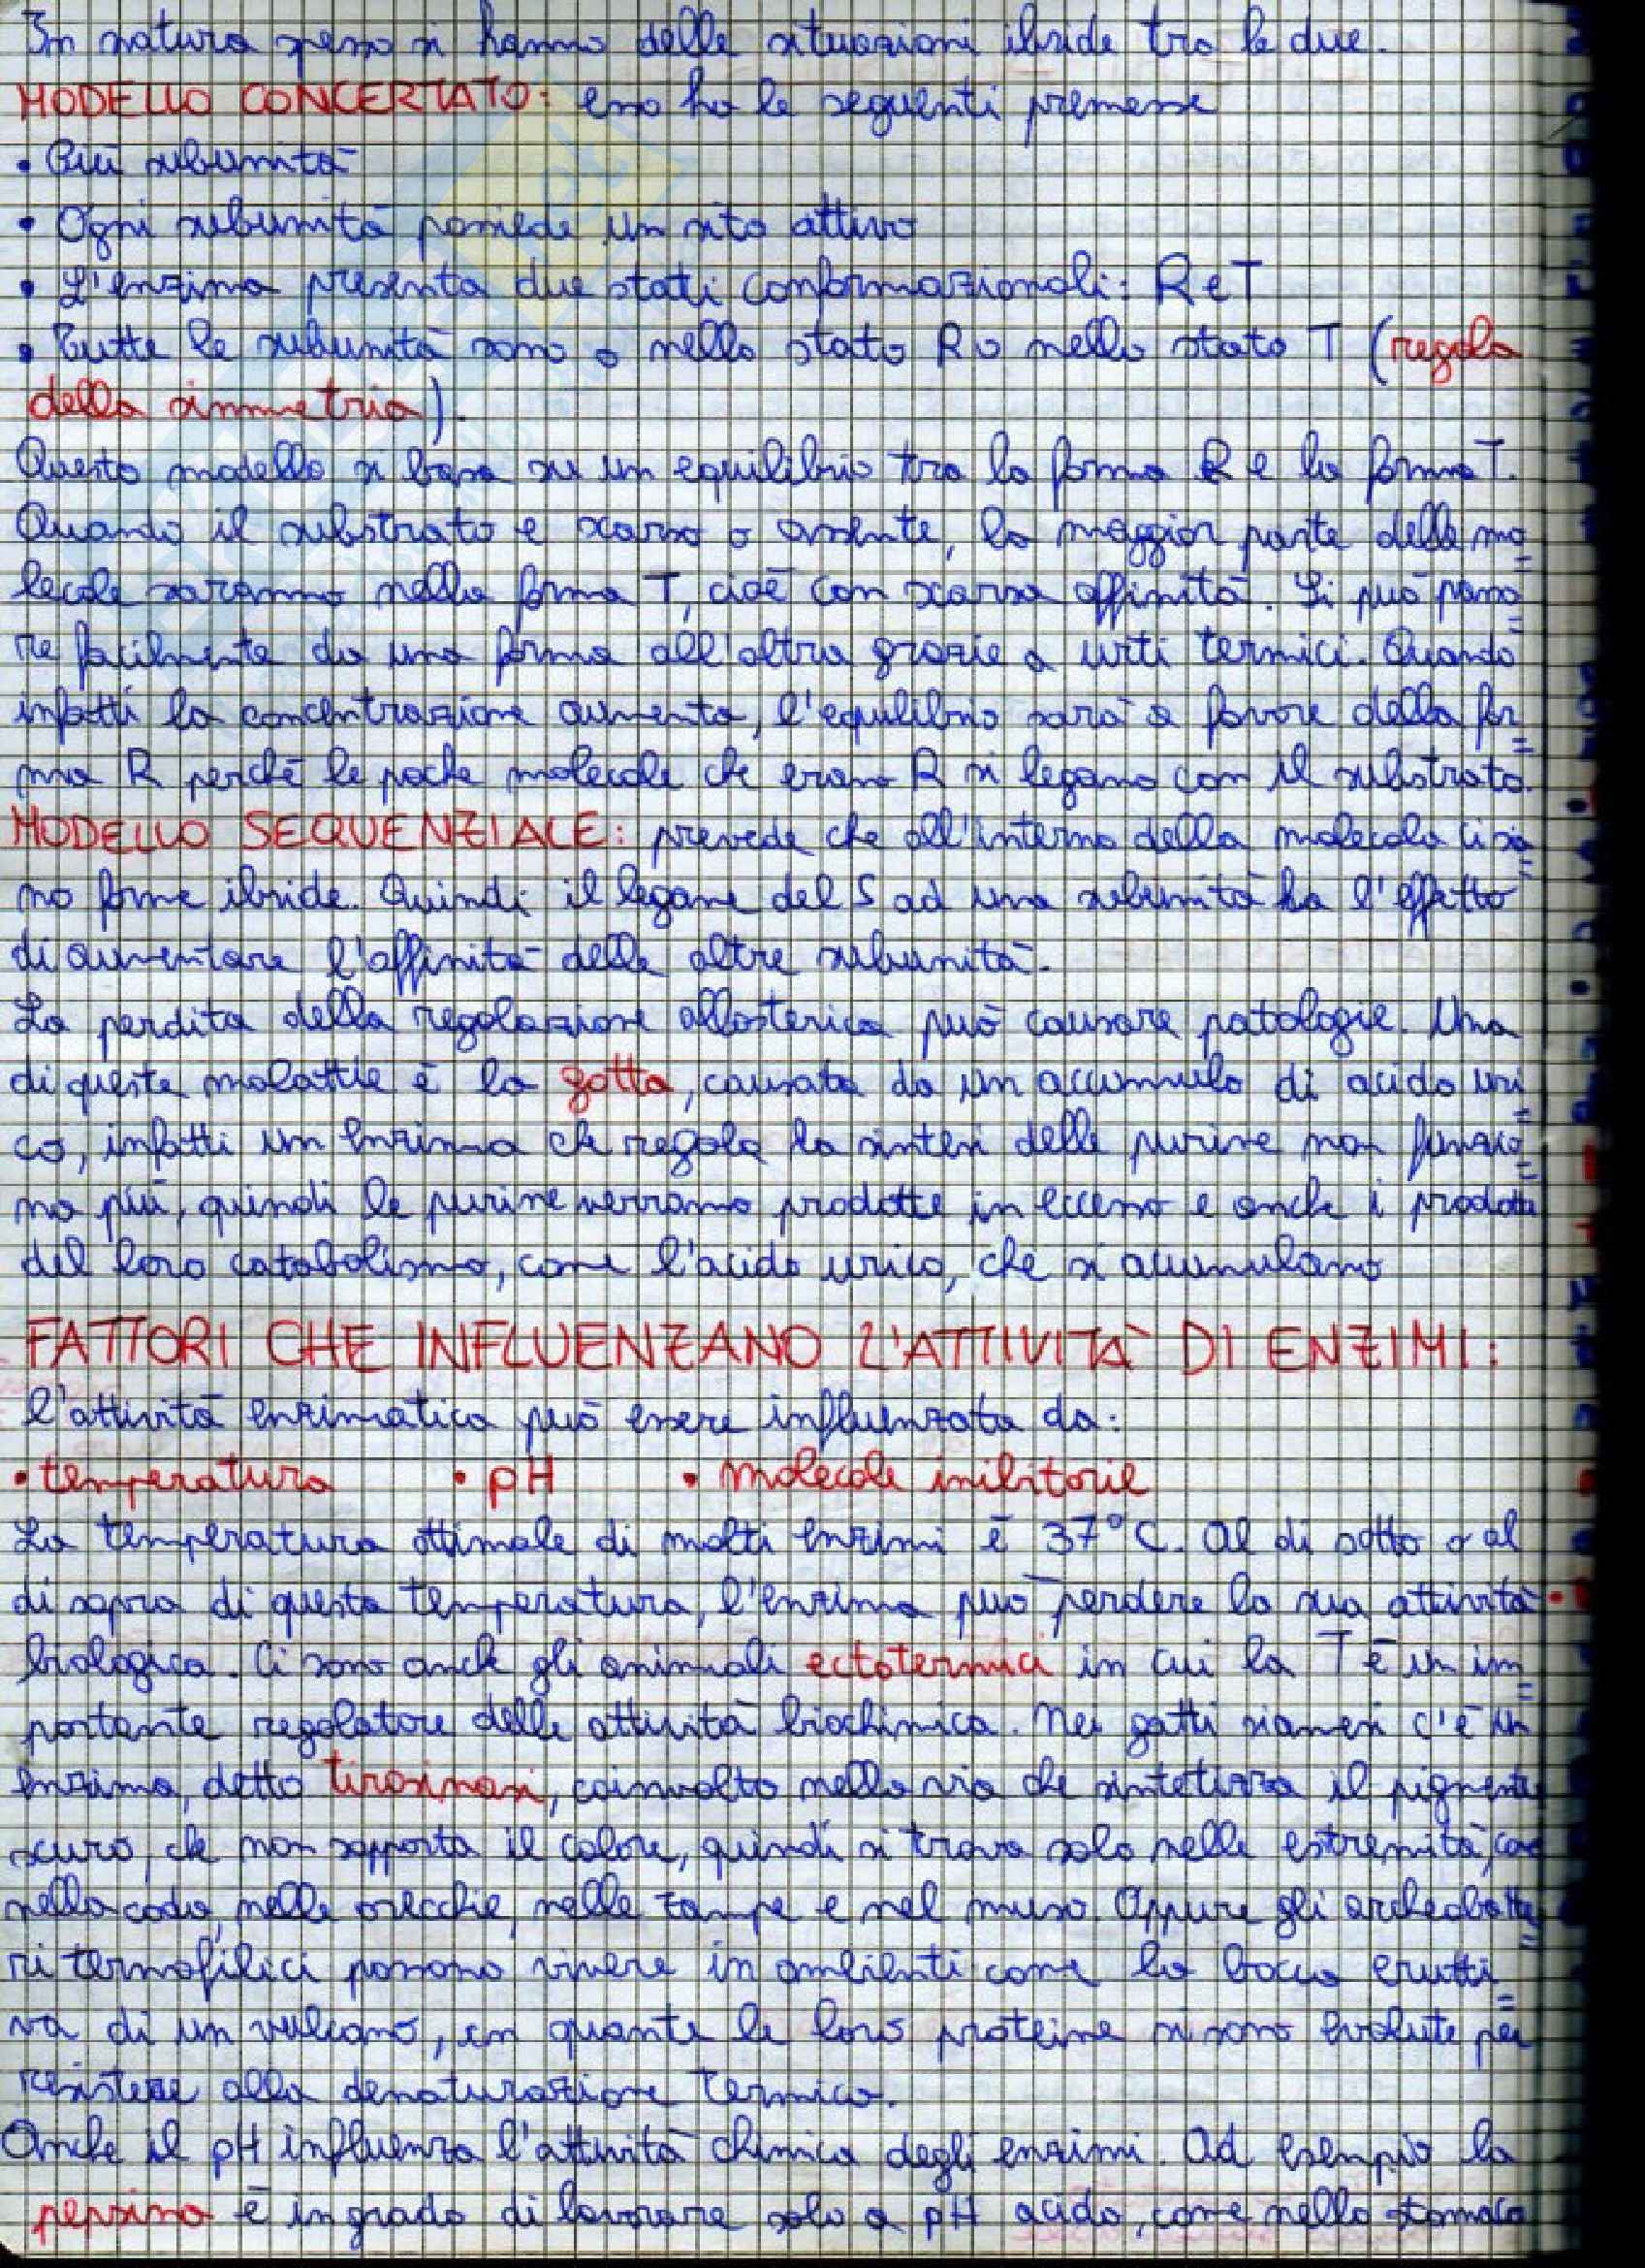 In natura spesso si hanno delle situazioni ibride tra le due.
MODELLO CONCERTATO: esso ha le seguenti premesse
• Più subunità
• Ogni subunità possiede un sito attivo
• L'enzima presenta due stati conformazionali: R e T
• Tutte le subunità sono o nello stato R o nello stato T (regola
della simmetria).
Questo modello si basa su un equilibrio tra la forma R e la forma T.
Quando il substrato è scarso o assente, la maggior parte delle mo=
lecole saranno nella forma T, cioè con scarsa affinità. Si può passa=
re facilmente da una forma all'altra grazie a urti termici. Quando
infatti la concentrazione aumenta, l'equilibrio sarà a favore della for=
ma R perché le poche molecole che erano R si legano con il substrato.
MODELLO SEQUENZIALE: prevede che all'interno della molecola ci sia=
no forme ibride. Quindi il legame del S ad una subunità ha l'effetto
di aumentare l'affinità delle altre subunità.
La perdita della regolazione allosterica può causare patologie. Una
di queste malattie è la gotta, causata da un accumulo di acido uri=
co, infatti un enzima che regola la sintesi delle purine non funzio=
na più, quindi le purine verranno prodotte in eccesso e anche i prodotti
del loro catabolismo, come l'acido urico, che si accumulano
FATTORI CHE INFLUENZANO L'ATTIVITÀ DI ENZIMI:
l'attività enzimatica può essere influenzata da:
• temperatura • pH • molecole inibitorie
La temperatura ottimale di molti enzimi è 37°C. Al di sotto o al
di sopra di questa temperatura, l'enzima può perdere la sua attività
biologica. Ci sono anche gli animali ectotermici in cui la T è un im=
portante regolatore delle attività biochimica. Nei gatti siamesi c'è un
enzima, detto tirosinasi, coinvolto nella via che sintetizza il pigmento
scuro, che non sopporta il calore, quindi si trova solo nelle estremità, come
nella coda, nelle orecchie, nelle zampe e nel muso. Oppure gli archeobatte=
ri termofilici possono vivere in ambienti come la bocca erutti=
va di un vulcano, in quanto le loro proteine si sono evolute per
resistere alla denaturazione termica.
Anche il pH influenza l'attività chimica degli enzimi. Ad esempio la
pepsina è in grado di lavorare solo a pH acido, come nello stomaco